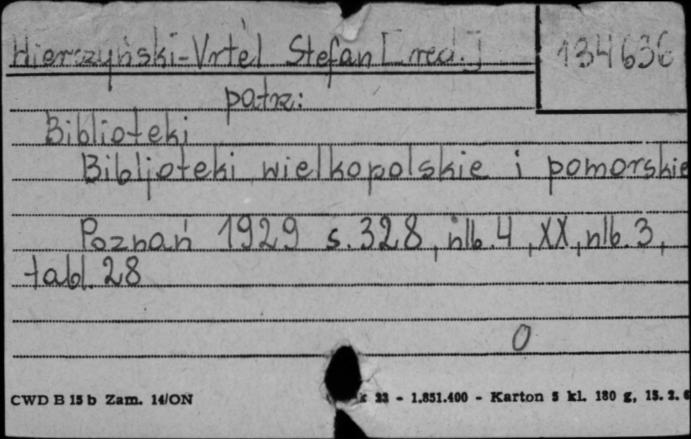 Hierczyński-Vrtel Stefan [red.] 134636
patrz:
Biblioteki
Bibljoteki wielkopolskie i pomorskie
Poznań 1929 s. 328, nlb. 4, XX, nlb. 3,
tabl. 28
0
CWD B 15 b Zam. 14/ON 22 - 1.851.400 - Karton 5 kl. 180 g, 15. 2. 6